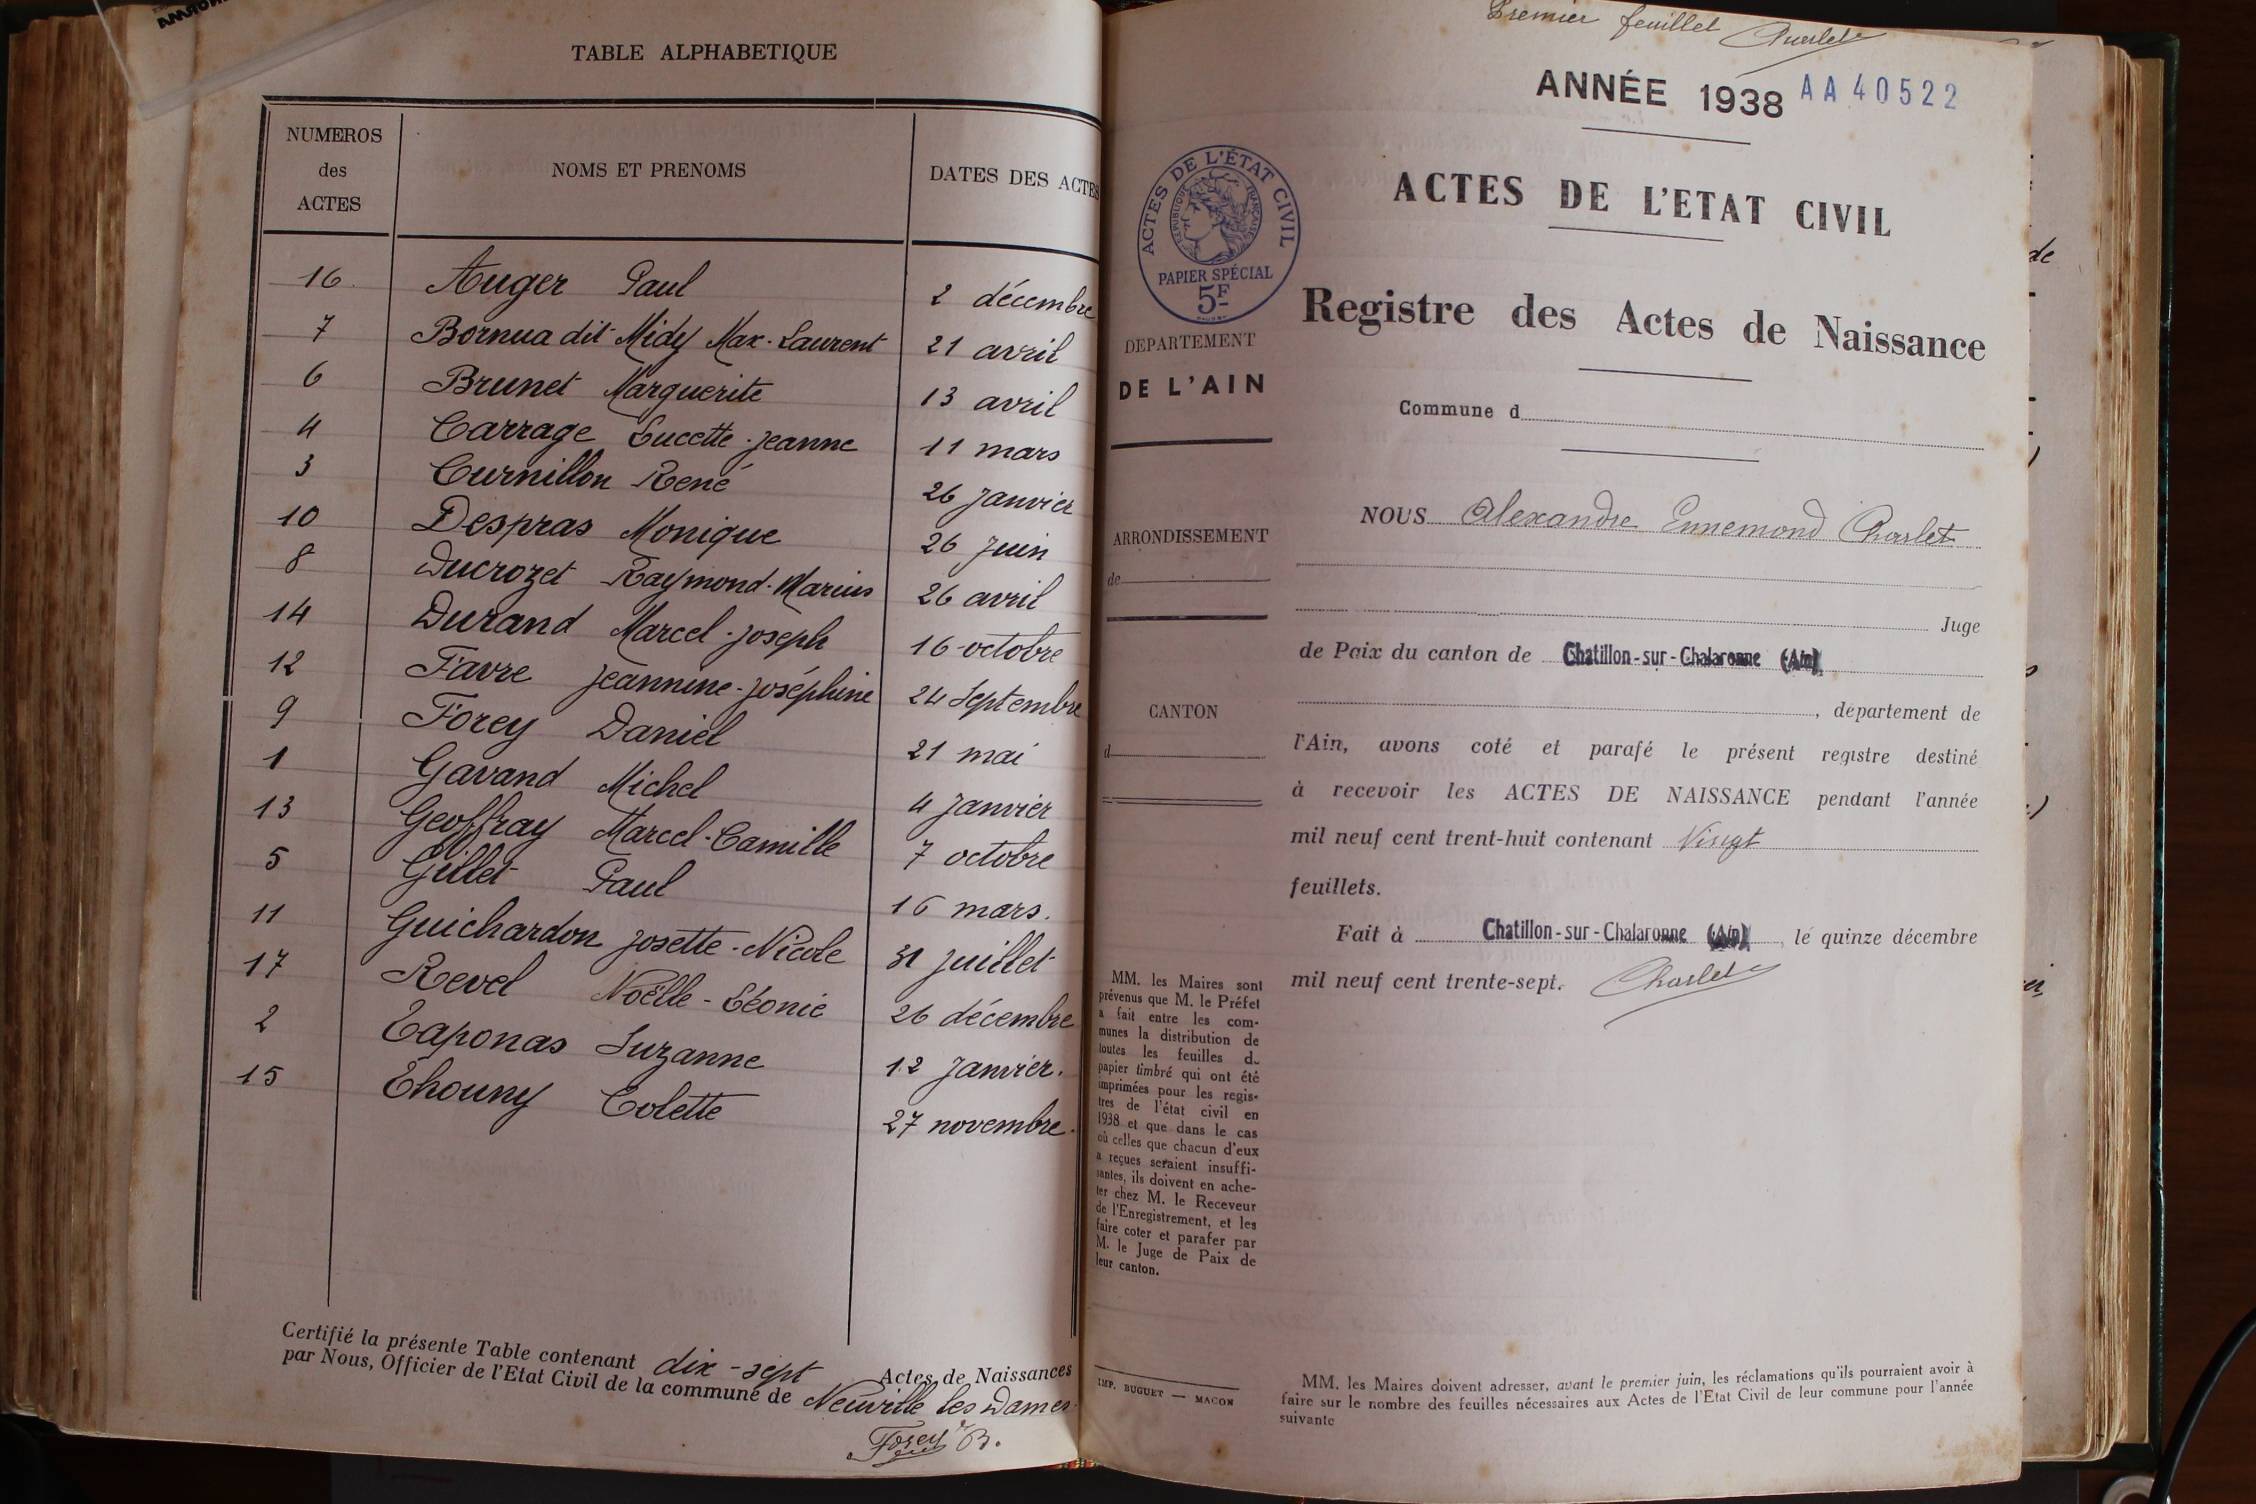 TABLE ALPHABETIQUE
NUMEROS des ACTES NOMS ET PRENOMS DATES DES ACTES
16 Auger Paul 2 décembre
7 Bornua dit Midy Max-Laurent 21 avril
6 Brunet Marguerite 13 avril
4 Carrage Lucette-Jeanne 11 mars
3 Curnillon René 26 Janvier
10 Despras Monique 26 Juin
8 Ducrozet Raymond-Marius 26 avril
14 Durand Marcel-Joseph 16 octobre
12 Favre Jeannine-Joséphine 24 Septembre
9 Forey Daniel 21 mai
1 Gavand Michel 4 Janvier
13 Geoffray Marcel-Camille 7 octobre
5 Gillet Paul 16 mars.
11 Guichardon Josette-Nicole 31 Juillet
17 Revel Noëlle-Léonie 26 décembre
2 Taponas Suzanne 12 Janvier.
15 Thouny Colette 27 novembre.
Certifié la présente Table contenant dix-sept Actes de Naissances
par Nous, Officier de l'Etat Civil de la commune de Neuville les Dames
Forey B.
Premier feuillet Charlet
ANNÉE 1938 AA 40522
ACTES DE L'ÉTAT CIVIL
RÉPUBLIQUE FRANÇAISE
PAPIER SPÉCIAL
5F
DEPARTEMENT
DE L'AIN
ARRONDISSEMENT
de
CANTON
d
MM. les Maires sont
prévenus que M. le Préfet
a fait entre les com-
munes la distribution de
toutes les feuilles du
papier timbré qui ont été
imprimées pour les regis-
tres de l'état civil en
1938 et que dans le cas
où celles que chacun d'eux
a reçues seraient insuffi-
santes, ils doivent en ache-
ter chez M. le Receveur
de l'Enregistrement, et les
faire coter et parafer par
M. le Juge de Paix de
leur canton.
IMP. BUGUET — MACON
ACTES DE L'ETAT CIVIL
Registre des Actes de Naissance
Commune d
NOUS Alexandre Ennemond Charlet
Juge
de Paix du canton de Chatillon-sur-Chalaronne (Ain)
, département de
l'Ain, avons coté et parafé le présent registre destiné
à recevoir les ACTES DE NAISSANCE pendant l'année
mil neuf cent trent-huit contenant Vingt
feuillets.
Fait à Chatillon-sur-Chalaronne (Ain), le quinze décembre
mil neuf cent trente-sept. Charlet
MM. les Maires doivent adresser, avant le premier juin, les réclamations qu'ils pourraient avoir à
faire sur le nombre des feuilles nécessaires aux Actes de l'Etat Civil de leur commune pour l'année
suivante
de